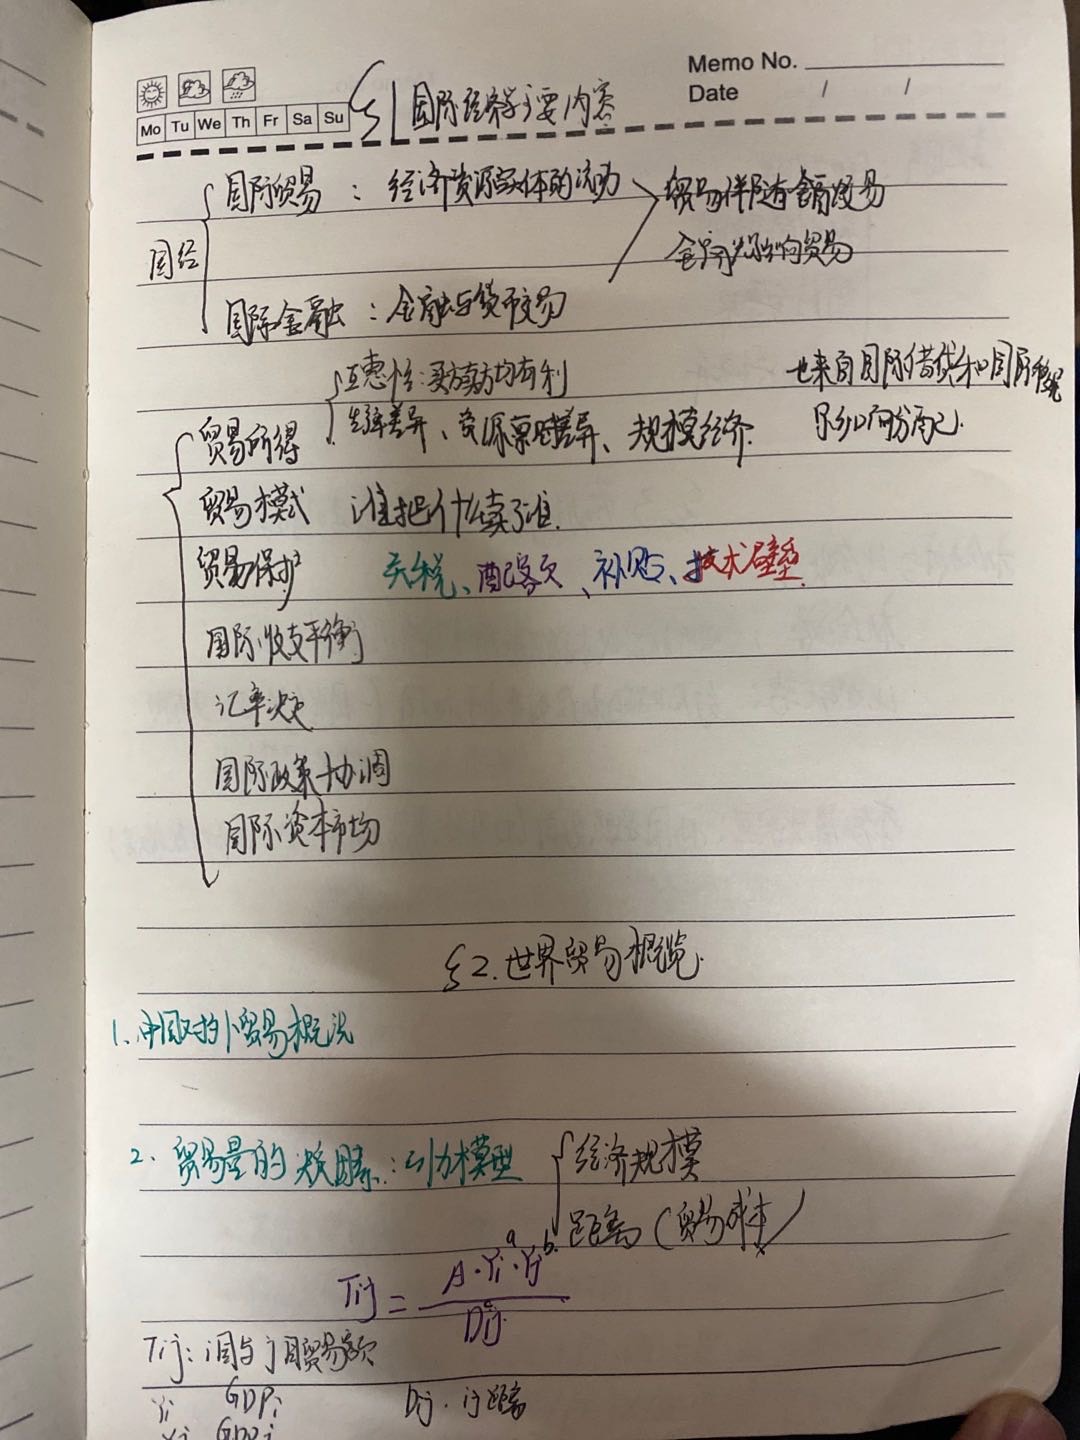 Memo No.
Date / /
Mo Tu We Th Fr Sa Su
§1 国际经济学主要内容
国际贸易：经济资源实体的流动
贸易伴随金融交易
国经
金融影响贸易
国际金融：金融与货币交易
互惠性：买方卖方均有利
也来自国际借贷和国际
生产率差异、资源禀赋差异、规模经济.
贸易所得
贸易模式 谁把什么卖了谁.
贸易保护 关税、配额、补贴、技术壁垒
国际收支平衡
汇率决定
国际政策协调
国际资本市场
§2. 世界贸易概览
1、中国对外贸易概况
2、贸易量的决定因素：引力模型
经济规模
距离（贸易成本）
Tij = A·Yi^a·Yj^b / Dij^c
Tij：i国与j国贸易额
Yi GDPi Dij. ij距离
Yj GDPj